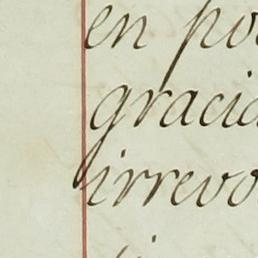 en po
gracia
irrevo